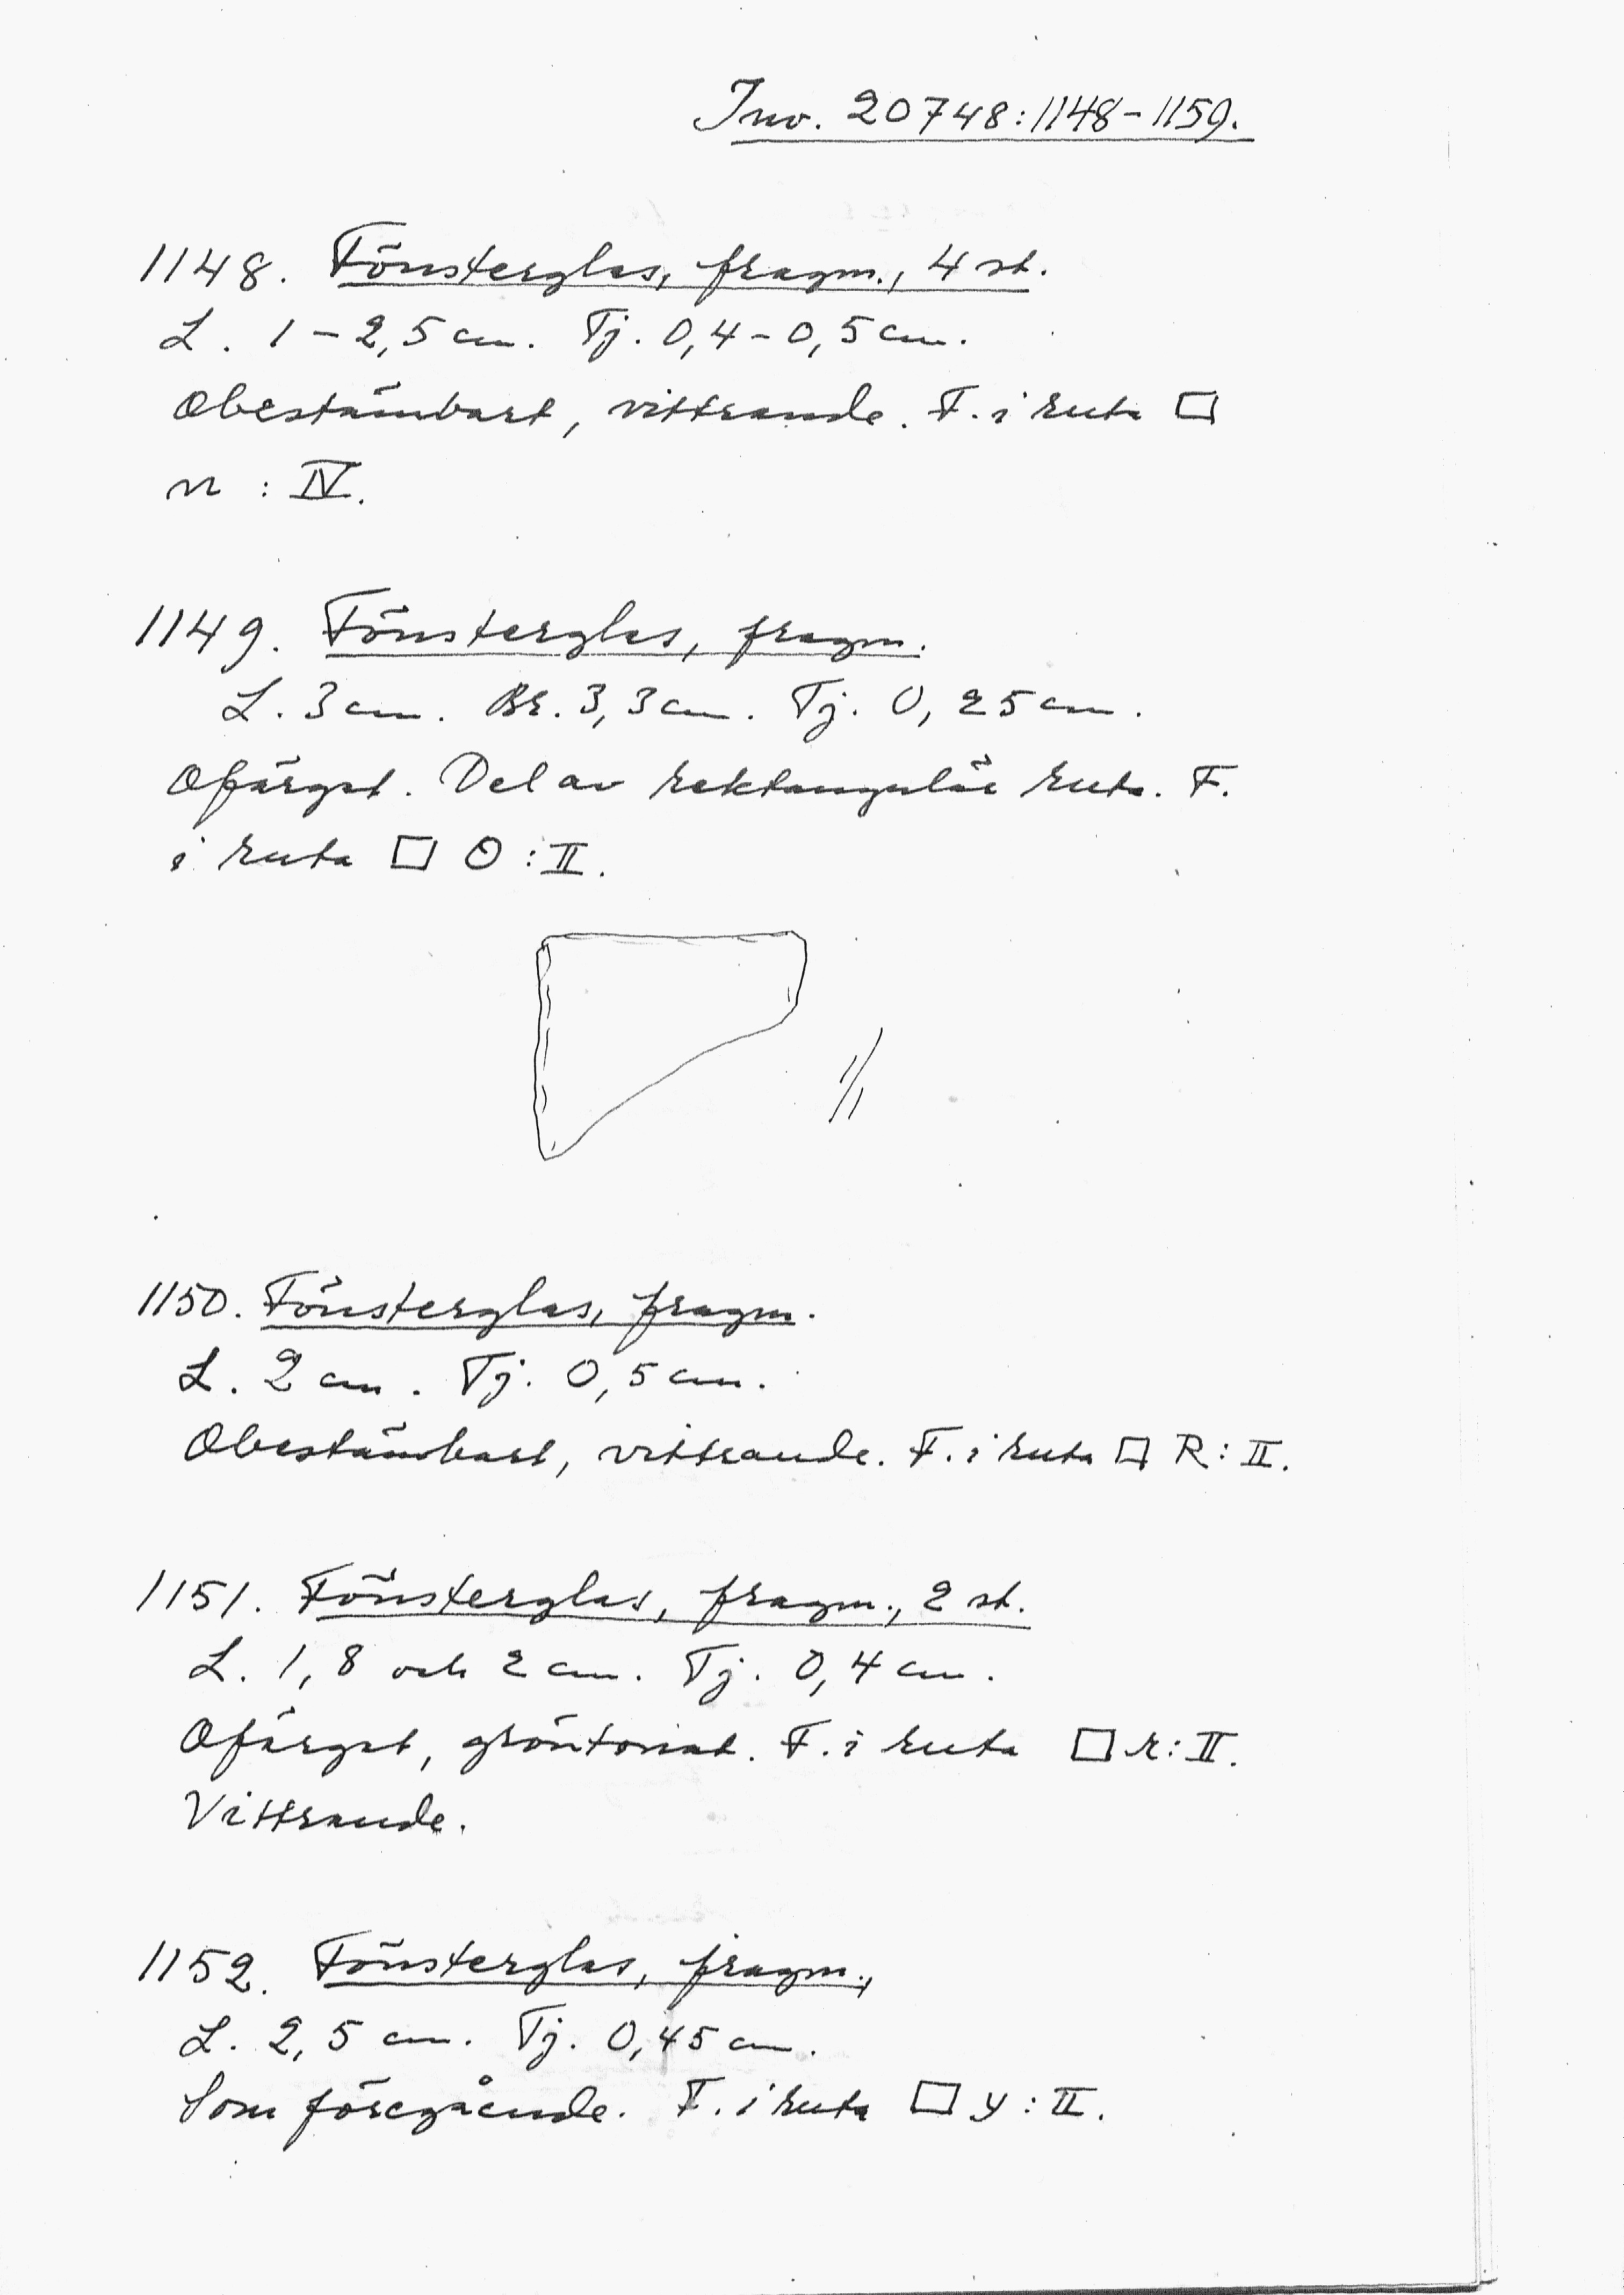 Inv. 20748:1148-1159.
1148. Fönsterglas, fragm., 4 st.
L. 1-2,5 cm. Tj. 0,4-0,5 cm.
Obestämbart, vittrande. F. i ruta □
n : IV.
1149. Fönsterglas, fragm.
L. 3 cm. Br. 3,3 cm. Tj. 0,25 cm.
Ofärgat. Del av rektangulär ruta. F.
i ruta □ O : II.
1/1
1150. Fönsterglas, fragm.
L. 2 cm. Tj. 0,5 cm.
Obestämbart, vittrande. F. i ruta □ R : II.
1151. Fönsterglas, fragm., 2 st.
L. 1,8 och 2 cm. Tj. 0,4 cm.
Ofärgat, gröntonat. F. i ruta □ r : II.
Vittrande.
1152. Fönsterglas, fragm.,
L. 2,5 cm. Tj. 0,45 cm.
Som föregående. F. i ruta □ y : II.